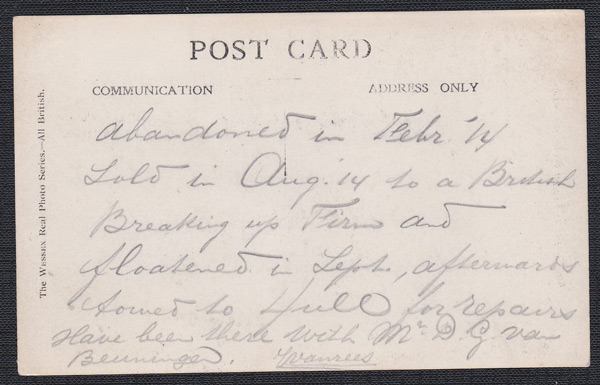 POST CARD
COMMUNICATION
ADDRESS ONLY
The WESSEX Real Photo Series.—All British.
abandoned in Febr '14
Sold in Aug. 14 to a British
Breaking up Firm and
floatened in Sept., afterwards
towed to Hull for repairs
Have been there with Mr D. G. van
Beuningen.